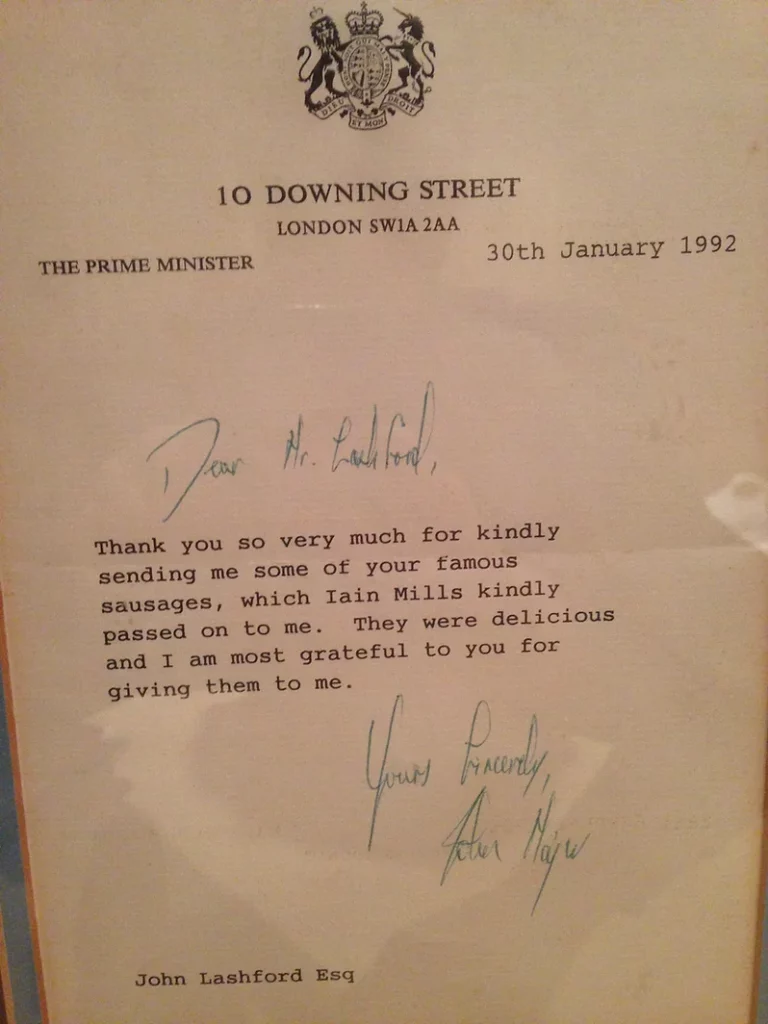 DIEU ET MON DROIT
10 DOWNING STREET
LONDON SW1A 2AA
THE PRIME MINISTER
30th January 1992
Dear Mr. Lashford,
Thank you so very much for kindly
sending me some of your famous
sausages, which Iain Mills kindly
passed on to me. They were delicious
and I am most grateful to you for
giving them to me.
Yours Sincerely,
John Major
John Lashford Esq